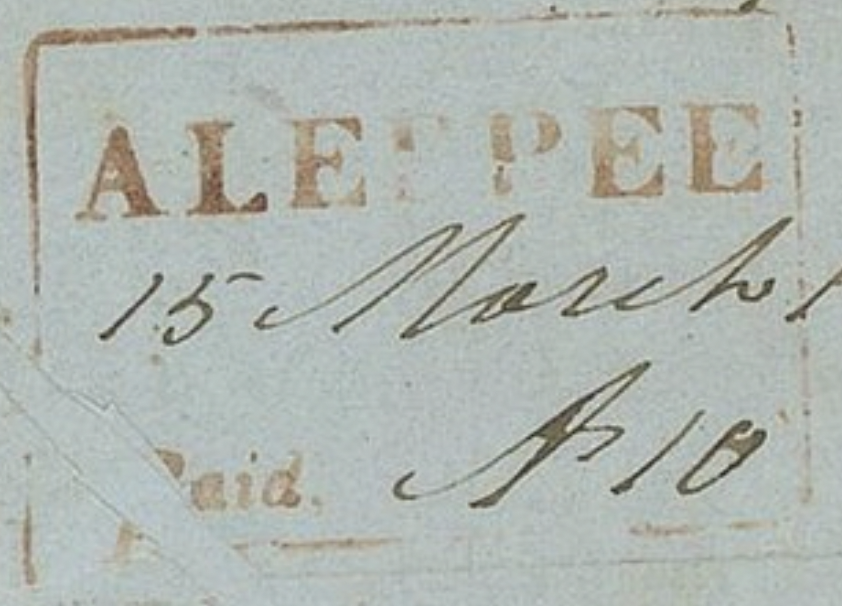 ALEPPEE
15 March 1
Paid. As 10